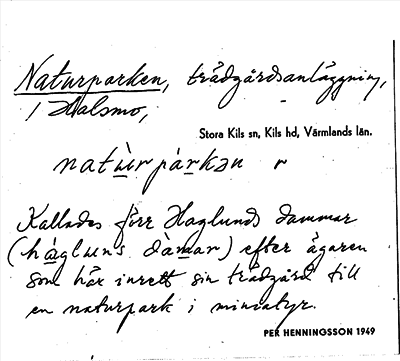 Naturparken, trädgårdsanläggning,
i Halsmo,
Stora Kils sn, Kils hd, Värmlands län.
natùrpàrkən r
Kallades förr Haglunds dammar
(hàgluns dàmar) efter ägaren
som här inrett sin trädgård till
en naturpark i miniatyr.
PER HENNINGSSON 1949